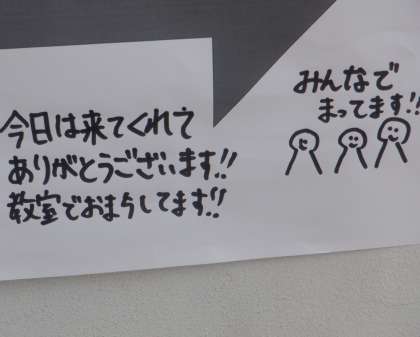 今日は来てくれて
ありがとうございます!!
教室でおまちしてます!!
みんなで
まってます!!